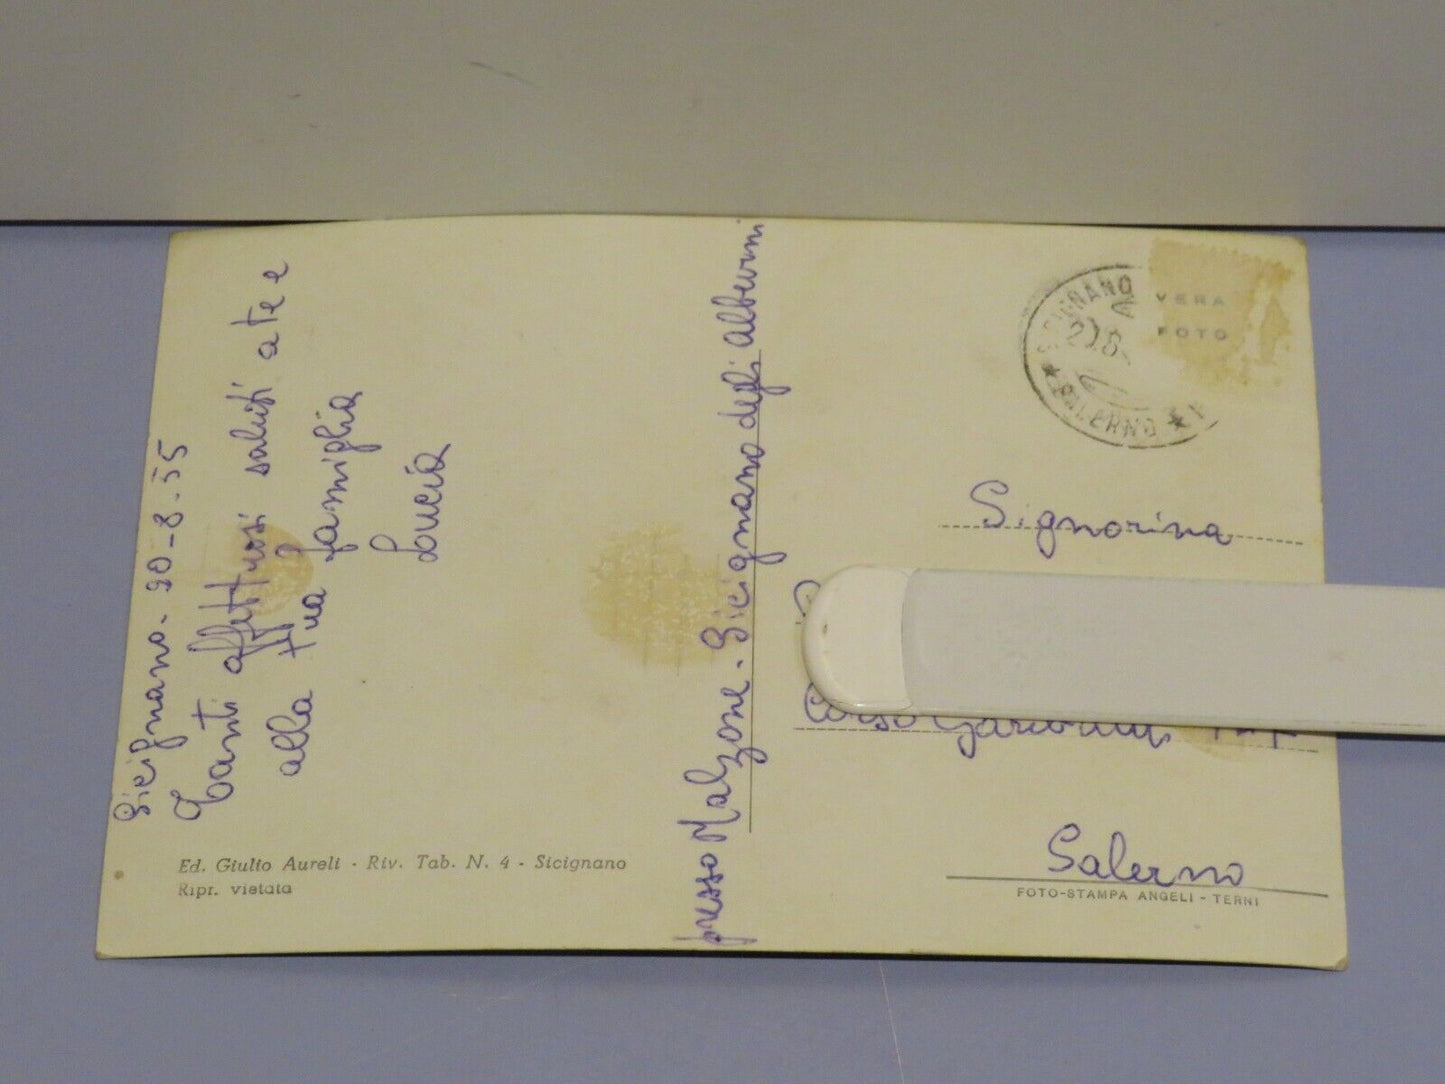 Sicignano - 20-8-55
Tanti affettuosi saluti a te e
alla tua famiglia
Lucia
presso Malzone - Sicignano degli Alburni
Ed. Giulio Aureli - Riv. Tab. N. 4 - Sicignano
Ripr. vietata
SICIGNANO
SALERNO
VERA
FOTO
Signorina
Corso Garibaldi
Salerno
FOTO-STAMPA ANGELI - TERNI